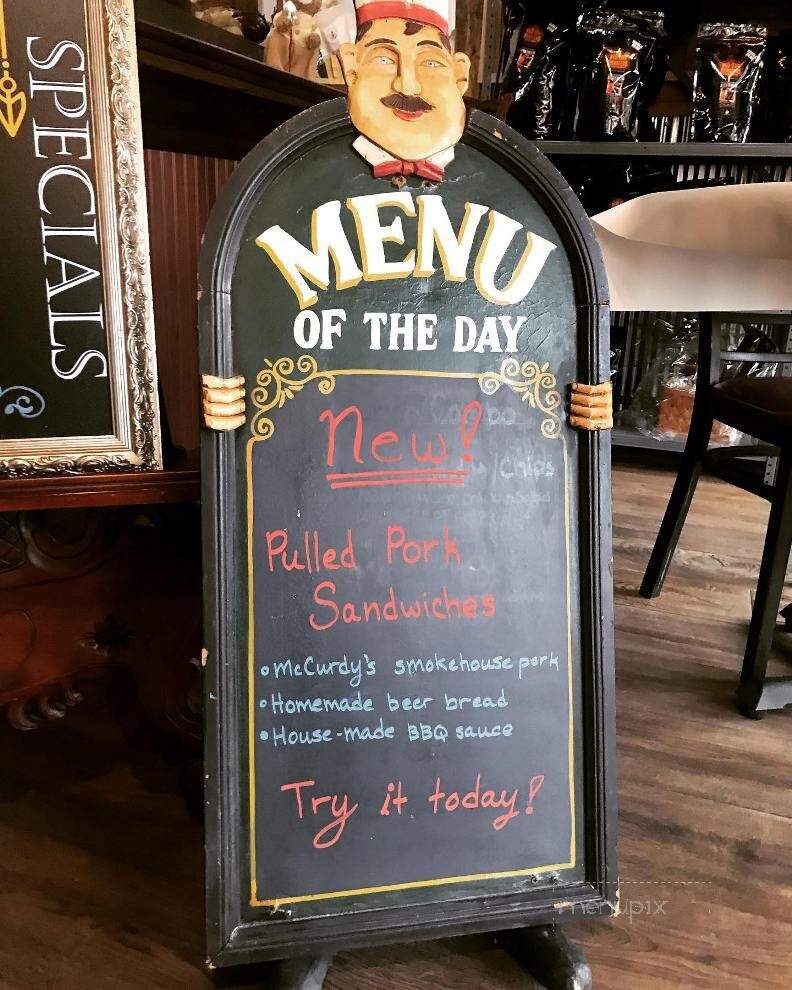 SPECIALS
MENU
OF THE DAY
New!
w/Chips
Pulled Pork
Sandwiches
• McCurdy's smokehouse pork
• Homemade beer bread
• House-made BBQ sauce
Try it today!
menupix